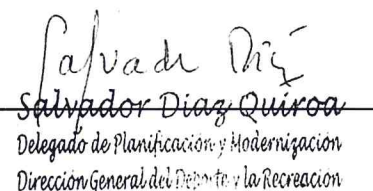 Salvador Díaz
Salvador Diaz Quiroa
Delegado de Planificación y Modernización
Dirección General del Deporte y la Recreación